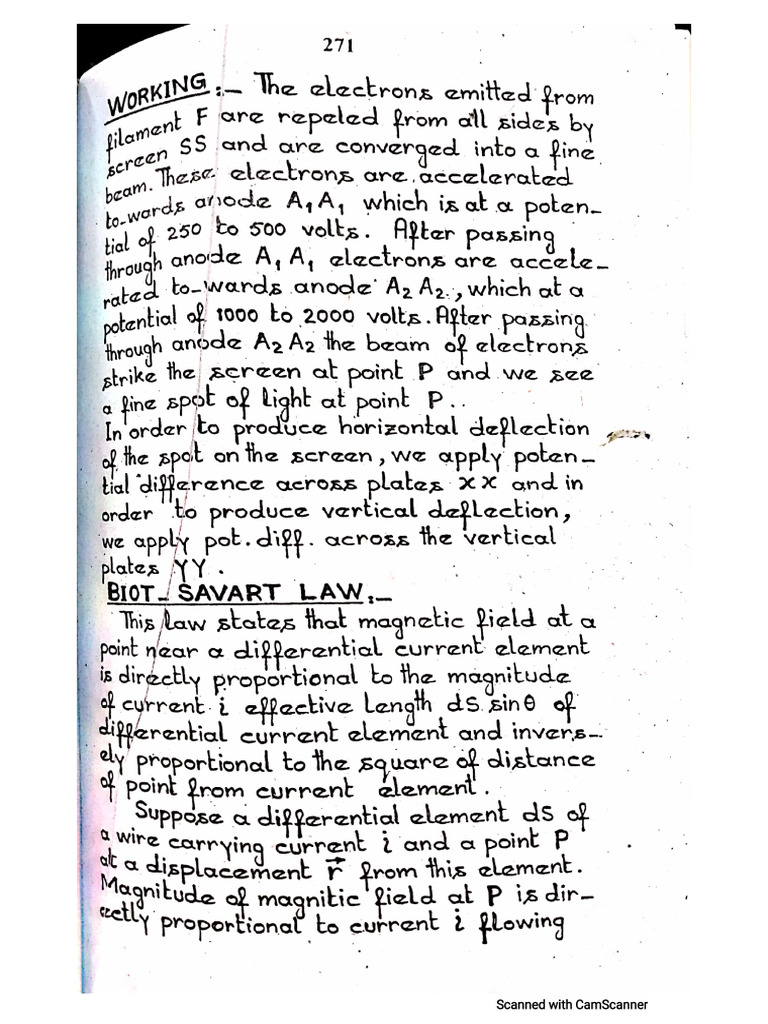 271
WORKING :- The electrons emitted from
filament F are repeled from all sides by
screen SS and are converged into a fine
beam. These electrons are accelerated
to-wards anode A₁A₁ which is at a poten-
tial of 250 to 500 volts. After passing
through anode A₁ A₁ electrons are accele-
rated to-wards anode A₂ A₂, which at a
potential of 1000 to 2000 volts. After passing
through anode A₂ A₂ the beam of electrons
strike the screen at point P and we see
a fine spot of light at point P..
In order to produce horizontal deflection
of the spot on the screen, we apply poten-
tial difference across plates xx and in
order to produce vertical deflection,
we apply pot. diff. across the vertical
plates YY.
BIOT-SAVART LAW :-
This law states that magnetic field at a
point near a differential current element
is directly proportional to the magnitude
of current i effective length ds sinθ of
differential current element and invers-
ely proportional to the square of distance
of point from current element.
Suppose a differential element ds of
a wire carrying current i and a point P
at a displacement r⃗ from this element.
Magnitude of magnitic field at P is dir-
ectly proportional to current i flowing
Scanned with CamScanner